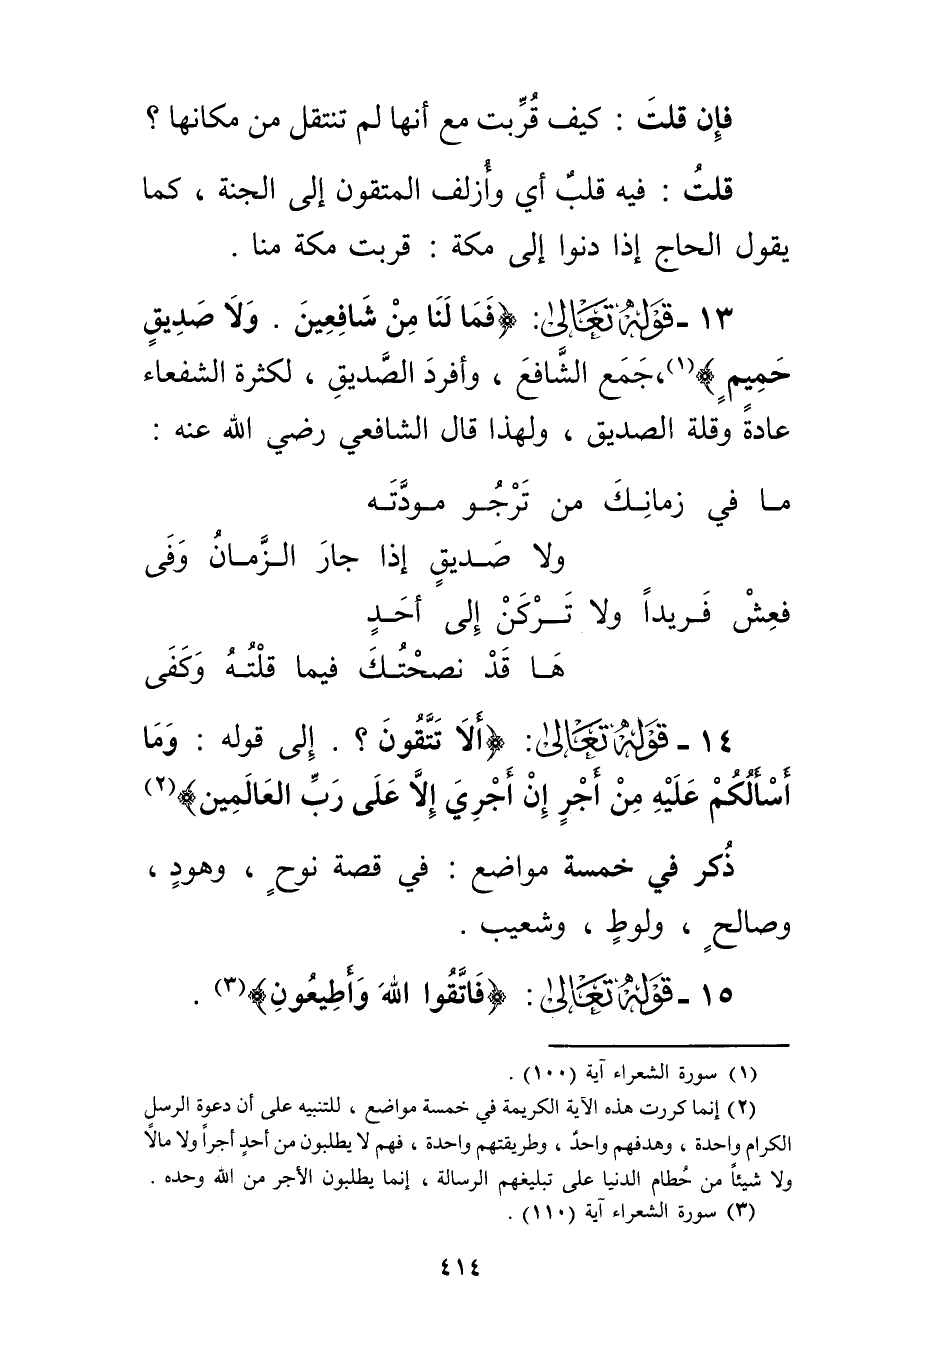 فإِن قلتَ : كيف قُرِّبت مع أنها لم تنتقل من مكانها ؟
قلتُ : فيه قلبٌ أي وأُزلف المتقون إلى الجنة ، كما
يقول الحاج إذا دنوا إلى مكة : قربت مكة منا .
١٣ - قَوْلُهُ تَعَالَىٰ : ﴿فَمَا لَنَا مِنْ شَافِعِينَ . وَلَا صَدِيقٍ
حَمِيمٍ﴾(١)، جَمَع الشَّافعَ ، وأفردَ الصَّديقِ ، لكثرة الشفعاء
عادةً وقلة الصديق ، ولهذا قال الشافعي رضي الله عنه :
مـا في زمانِـكَ من تَرْجُـو مـودَّتَـه
ولا صَـديقٍ إذا جارَ الـزَّمـانُ وَفَى
فعِشْ فَـريداً ولا تَـرْكَنْ إِلى أحَـدٍ
هَـا قَدْ نصحْتُـكَ فيما قلْتُـهُ وَكَفَى
١٤ - قَوْلُهُ تَعَالَىٰ : ﴿أَلَا تَتَّقُونَ ؟ . إِلى قوله : وَمَا
أَسْأَلُكُمْ عَلَيْهِ مِنْ أَجْرٍ إِنْ أَجْرِيَ إِلَّا عَلَى رَبِّ العَالَمِين﴾(٢)
ذُكر في خمسة مواضع : في قصة نوحٍ ، وهودٍ ،
وصالحٍ ، ولوطٍ ، وشعيب .
١٥ - قَوْلُهُ تَعَالَىٰ : ﴿فَاتَّقُوا اللهَ وَأَطِيعُونِ﴾(٣) .
(١) سورة الشعراء آية (١٠٠) .
(٢) إنما كررت هذه الآية الكريمة في خمسة مواضع ، للتنبيه على أن دعوة الرسل
الكرام واحدة ، وهدفهم واحدٌ ، وطريقتهم واحدة ، فهم لا يطلبون من أحدٍ أجراً ولا مالاً
ولا شيئاً من حُطام الدنيا على تبليغهم الرسالة ، إنما يطلبون الأجر من الله وحده .
(٣) سورة الشعراء آية (١١٠) .
٤١٤